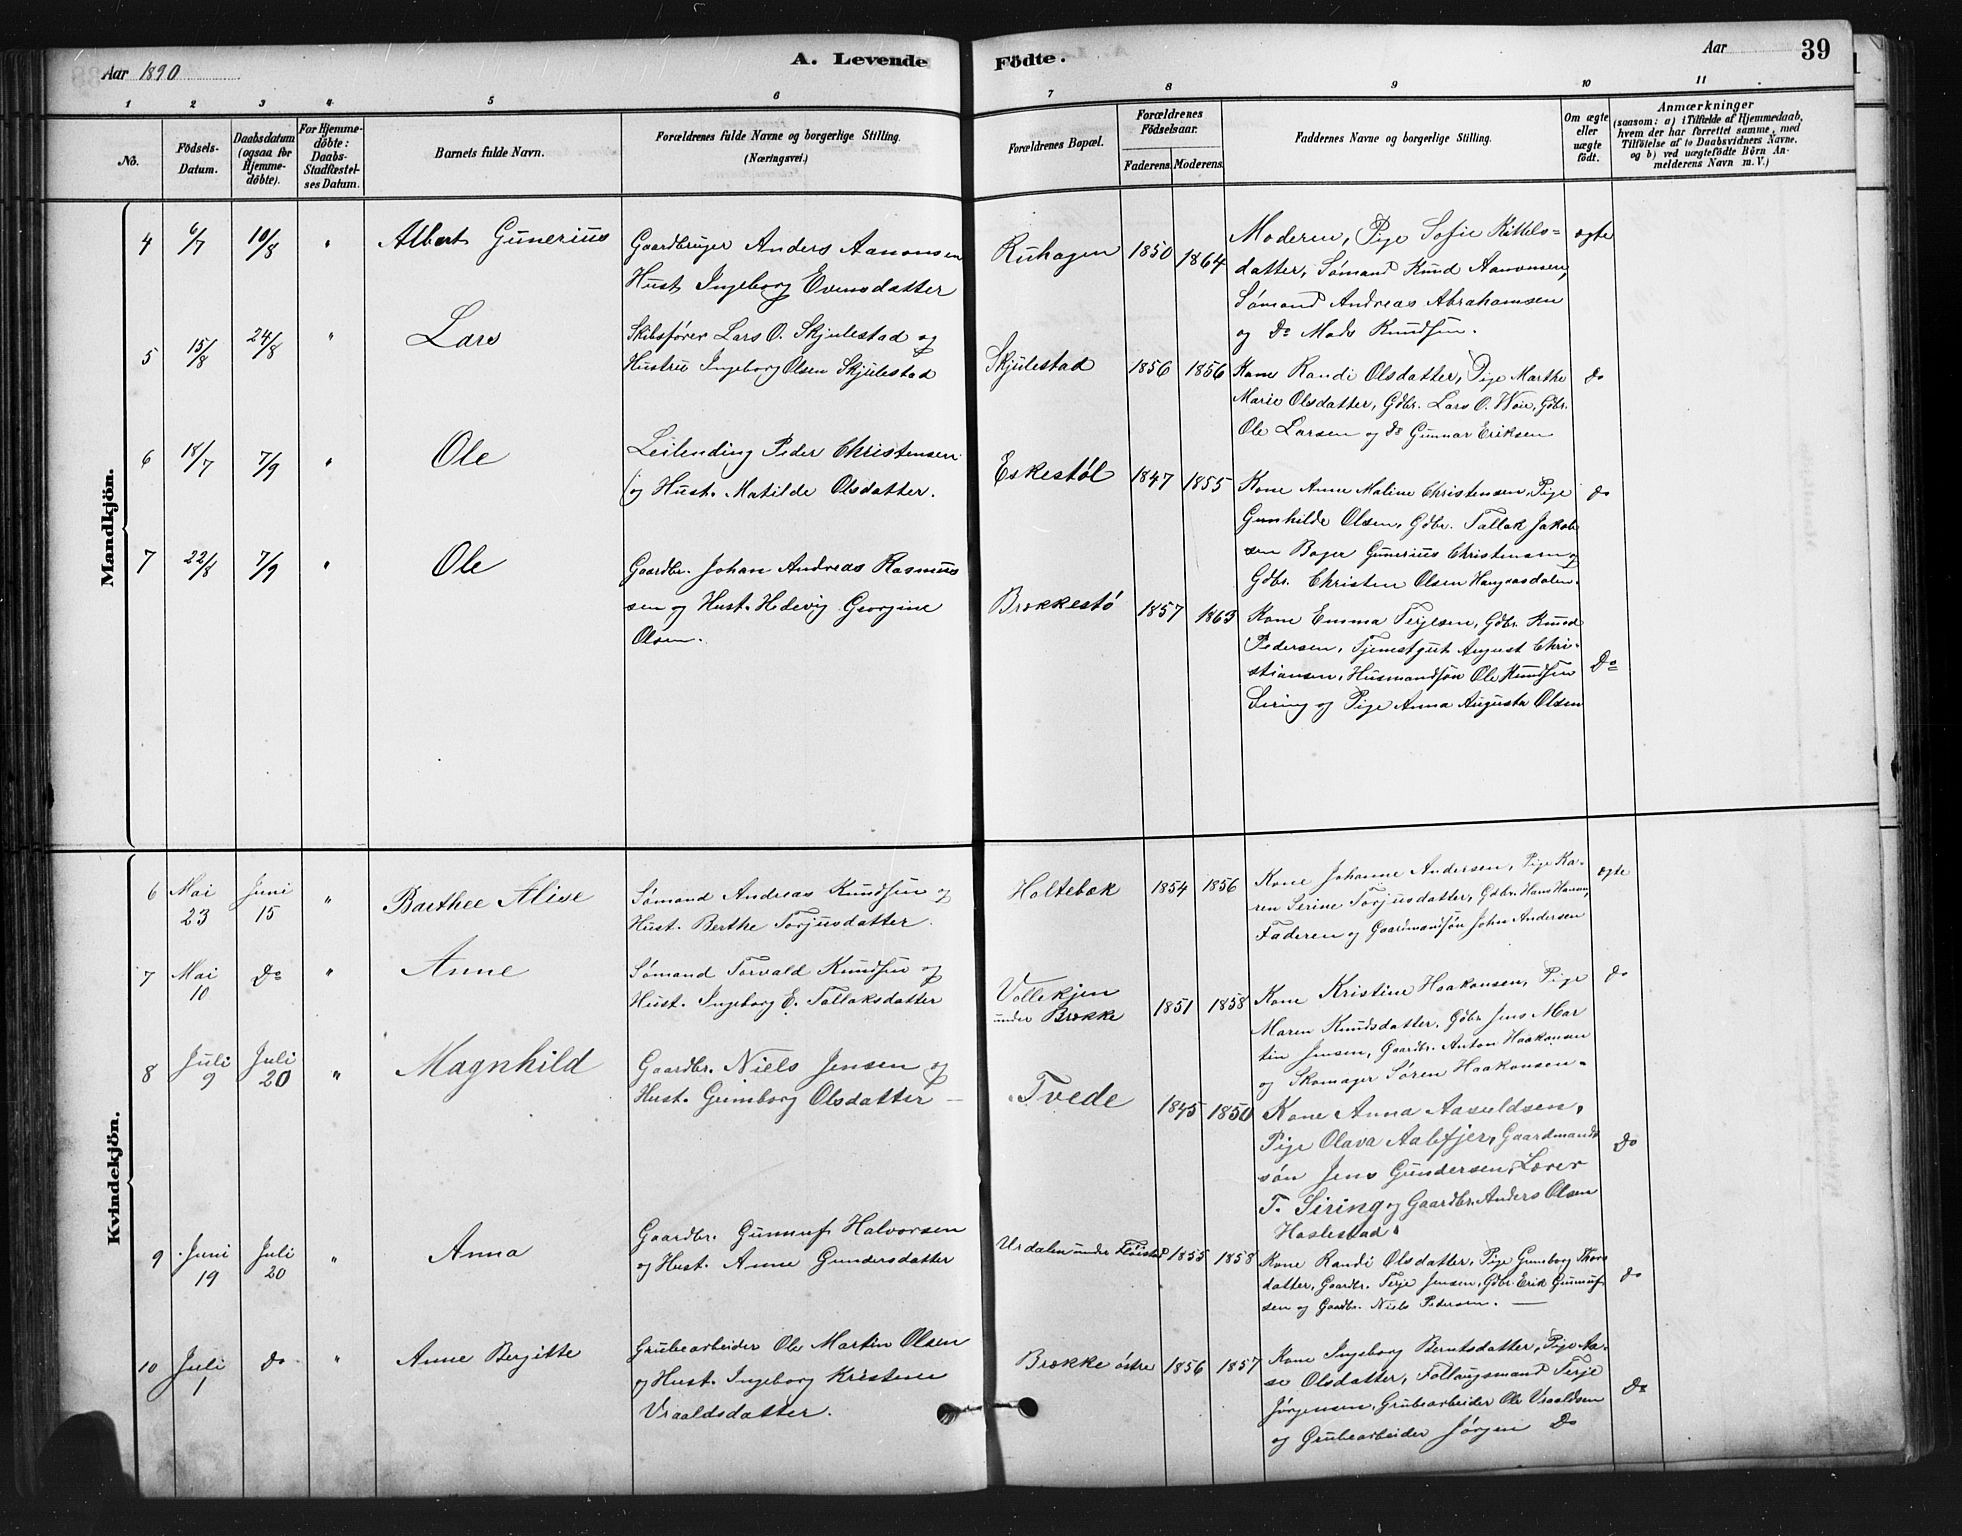 Aar 1890
A. Levende
Födte.
Aar
39
1
2
3
4
5
6
7
8
9
10
11
No.
Födsels-
Datum.
Daabsdatum
(ogsaa for
Hjemme-
döbte).
For Hjemme-
döbte:
Daabs-
Stadfæstel-
ses Datum.
Barnets fulde Navn.
Forældrenes fulde Navne og borgerlige Stilling.
(Næringsvei.)
Forældrenes Bopæl.
Forældrenes
Födselsaar.
Faderens.
Moderens.
Faddernes Navne og borgerlige Stilling.
Om ægte
eller
uægte
födt.
Anmærkninger
(saasom: a) i Tilfælde af Hjemmedaab,
hvem der har forrettet samme, med
Tilföielse af to Daabsvidners Navne,
og b) ved uægtefödte Börn An-
melderens Navn m. V.)
Mandkjön.
4
6/7
10/8
"
Albert Gunerius
Gaardbruger Anders Aanonsen
Hust Ingeborg Evensdatter
Ruhagen
1850
1864
Moderen, Pige Sofie Kittels-
datter, Sømand Knud Aanonsen,
Sømand Andreas Abrahamsen
og Do Mads Knudsen.
ægte
5
15/8
24/8
"
Lars
Skibsfører Lars O. Skjulestad og
Hustru Ingeborg Olsen Skjulestad
Skjulestad
1856
1856
Kone Randi Olsdatter, Pige Marthe
Marie Olsdatter, Gdbr. Lars O. Woie, Gdbr.
Ole Larsen og Do Gunnar Eriksen
do
6
18/7
7/9
"
Ole
Leilending Peder Christensen
og Hust. Matilde Olsdatter.
Eskestøl
1847
1855
Kone Anne Maline Christensen, Pige
Gunhilde Olsen, Gdbr. Tallak Jakob-
sen Bager Gunerius Christensen og
Gdbr. Christen Olsen
do
7
22/8
7/9
"
Ole
Gaardbr. Johan Andreas Rasmus
sen og Hust. Hedevig Georgine
Olsen.
Brækkestø
1857
1863
Kone Emma Terjesen, Gdbr. Knud
Pedersen, Tjenestgut August Chri-
stiansen, Husmandsøn Ole Knudsen
Siring og Pige Anna Augusta Olsen
Do
Kvindekjön.
6
Mai
23
Juni
15
"
Barthee Alise
Sømand Andreas Knudsen og
Hust. Berthe Torjusdatter.
Holtebæk
1854
1856
Kone Johanne Andersen, Pige Ka-
ren Serine Torjusdatter, Gdbr. Hans
Faderen og Gaardmandsøn John Andersen
ægte
7
Mai
10
Do
"
Anne
Sømand Torvald Knudsen og
Hust. Ingeborg E. Tallaksdatter
Vollekjen
under Brække
1851
1858
Kone Kristine Haakonsen, Pige
Maren Knudsdatter, Gdbr. Jens Mar
tin Jensen, Gaardbr. Anton Haakonsen
og Skomager Søren Haakonsen.
do
8
Juli
9
Juli
20
"
Magnhild
Gaardbr. Niels Jensen og
Hust. Gunborg Olsdatter
Tvede
1845
1850
Kone Anna Aasuldsen,
Pige Olava Aalefjer, Gaardmands
søn Jens Gundersen, Lærer
T. Siring og Gaardbr. Anders Olsen
Haslestad.
Do
9
Juni
19
Juli
20
"
Anna
Gaardbr. Gunnuf Halvorsen
og Hust. Anne Gundersdatter
Urdalen under Fløistad
1855
1858
Kone Randi Olsdatter, Pige Gunborg Thors
datter, Gaardbr. Terje Jensen, Gdbr. Erik Gunnuf
sen og Gaardbr. Niels Pedersen.
do
10
Juli
1
do
"
Anne Bergitte
Grubearbeider Ole Martin Olsen
og Hust. Ingeborg Kristine
Vraaldsdatter.
Brække østre
1856
1857
Kone Ingeborg Berntsdatter, Pige Aa-
se Olsdatter, Follaugsmand Terje
Jørgensen, Grubearbeider Ole Vraaldsen
og Grubearbeider Jørgen Do
Do